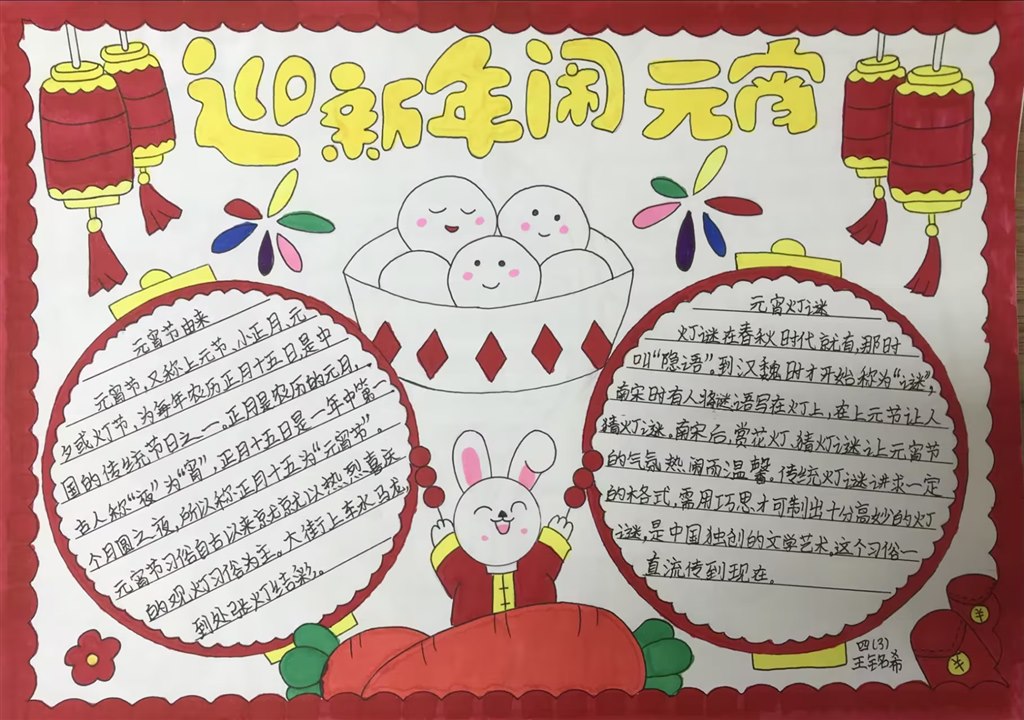 迎新年闹元宵
元宵节由来
元宵节,又称上元节、小正月、元
夕或灯节,为每年农历正月十五日,是中
国的传统节日之一。正月是农历的元月,
古人称“夜”为“宵”,正月十五日是一年中第一
个月圆之夜,所以称正月十五为“元宵节”。
元宵节习俗自古以来就以热烈喜庆
的观灯习俗为主。大街上车水马龙,
到处张灯结彩。
元宵灯谜
灯谜在春秋时代就有,那时
叫“隐语”。到汉魏时才开始称为“谜”,
南宋时有人将谜语写在灯上,在上元节让人
猜灯谜。南宋后,赏花灯、猜灯谜让元宵节
的气氛热闹而温馨。传统灯谜讲求一定
的木各式,需用巧思才可制出十分高妙的灯
谜,是中国独创的文学艺术,这个习俗一
直流传到现在。
四(3)